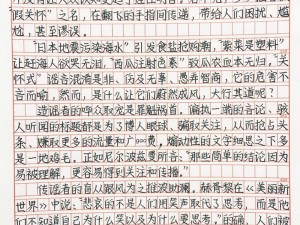 假关怀"之名，在翻飞的手指间传递，带给人们困扰、尴
尬，甚至谬误。
"日本地震污染海水"引发食盐抢购潮，"紫菜是塑料"
让赶海人欲哭无泪，"西瓜注射色素"致瓜农血本无归，"关
怀式"谣言混淆是非、伤及无辜、愚弄智商，它的危害不
言而喻，然而，是什么让它们蔚然成风，大行其道呢？
造谣者的哗众取宠是罪魁祸首，偏执一端的言论、骇
人听闻的标题都是为了博人眼球，骗取关注，从而抢占头
条、赚取更多的流量和广告费，煽动性的文字细思之下多
是一地鸡毛，正如尼尔波兹曼所言："那些简单的结论因为
易被理解，更容易得到关注和传播。"
传谣者的盲人跟风为之推波助澜，赫胥黎在《美丽新
世界》中说："悲哀的不是人们用笑声取代了思考，而是他
们不知道自己为什么笑以及为什么要思考，"的确，人们被